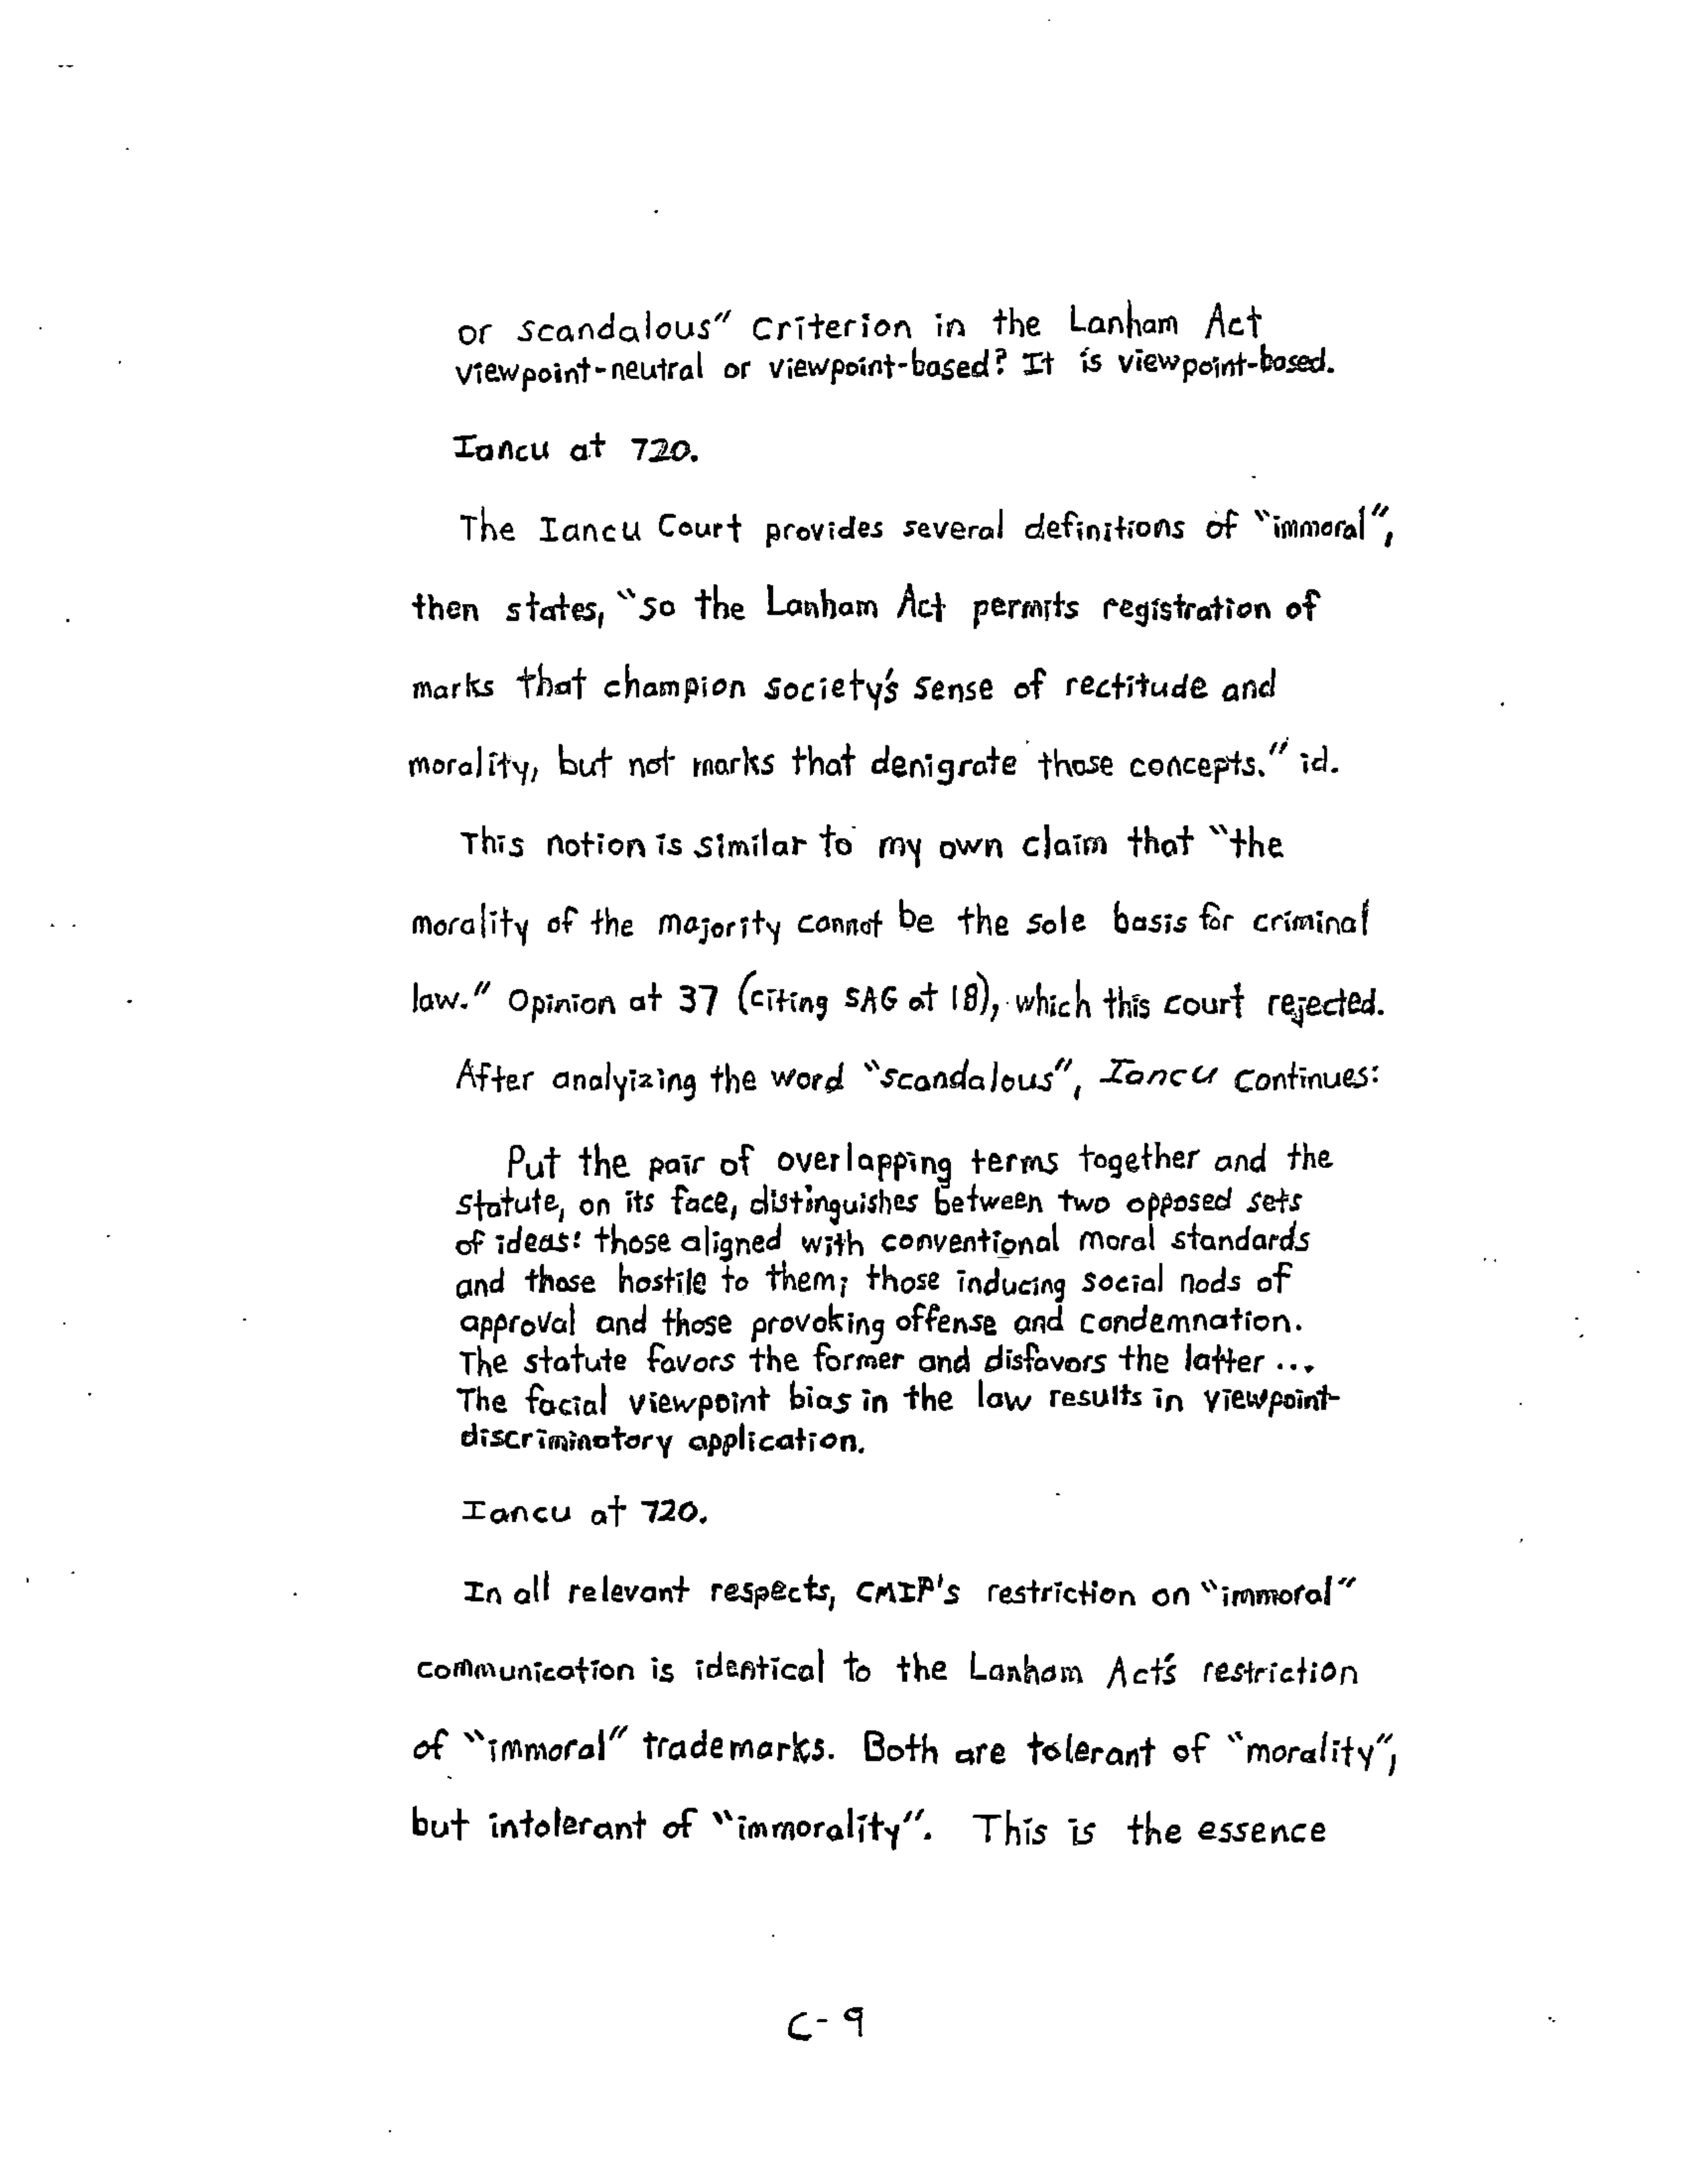 or scandalous" criterion in the Lanham Act
viewpoint-neutral or viewpoint-based? It is viewpoint-based.
Iancu at 720.
The Iancu Court provides several definitions of "immoral",
then states, "so the Lanham Act permits registration of
marks that champion society's sense of rectitude and
morality, but not marks that denigrate those concepts." id.
This notion is similar to my own claim that "the
morality of the majority cannot be the sole basis for criminal
law." Opinion at 37 (citing SAG at 18), which this court rejected.
After analyizing the word "scandalous", Iancu continues:
Put the pair of overlapping terms together and the
statute, on its face, distinguishes between two opposed sets
of ideas: those aligned with conventional moral standards
and those hostile to them; those inducing social nods of
approval and those provoking offense and condemnation.
The statute favors the former and disfavors the latter ...
The facial viewpoint bias in the law results in viewpoint-
discriminatory application.
Iancu at 720.
In all relevant respects, CMIP's restriction on "immoral"
communication is identical to the Lanham Act's restriction
of "immoral" trademarks. Both are tolerant of "morality",
but intolerant of "immorality". This is the essence
C-9